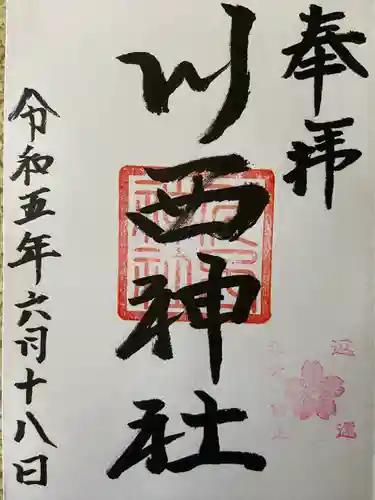 奉拝
川西神社
令和五年六月十八日